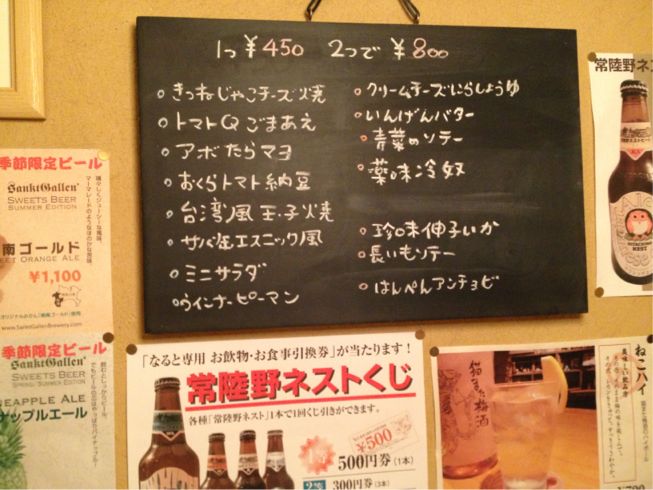 1つ ¥450 2つで ¥800
○きつねじゃこチーズ焼
○トマトQごまあえ
○アボたらマヨ
○おくらトマト納豆
○台湾風玉子焼
○サバ缶エスニック風
○ミニサラダ
○ウインナーピーマン
○クリームチーズにらしょうゆ
○いんげんバター
○青菜のソテー
○薬味冷奴
○珍味伸子いか
○長いもソテー
○はんぺんアンチョビ
常陸野ネス
季節限定ビール
SanktGallen
SWEETS BEER
SUMMER EDITION
瑞々しくジューシーな風味、
マーマレードのようなほのかな苦味。
南ゴールド
EET ORANGE ALE
¥1,100
www.SanktGallenBrewery.com
季節限定ビール
SanktGallen
SWEETS BEER
SUMMER EDITION
NEAPPLE ALE
ナップルエール
「なると専用 お飲物・お食事引換券」が当たります!
常陸野ネストくじ
各種「常陸野ネスト」1本で1回くじ引きができます。
¥500
1等 500円券(1本)
2等 300円券(3本)
HITACHINO
NEST
猫また梅酒
ねこハイ